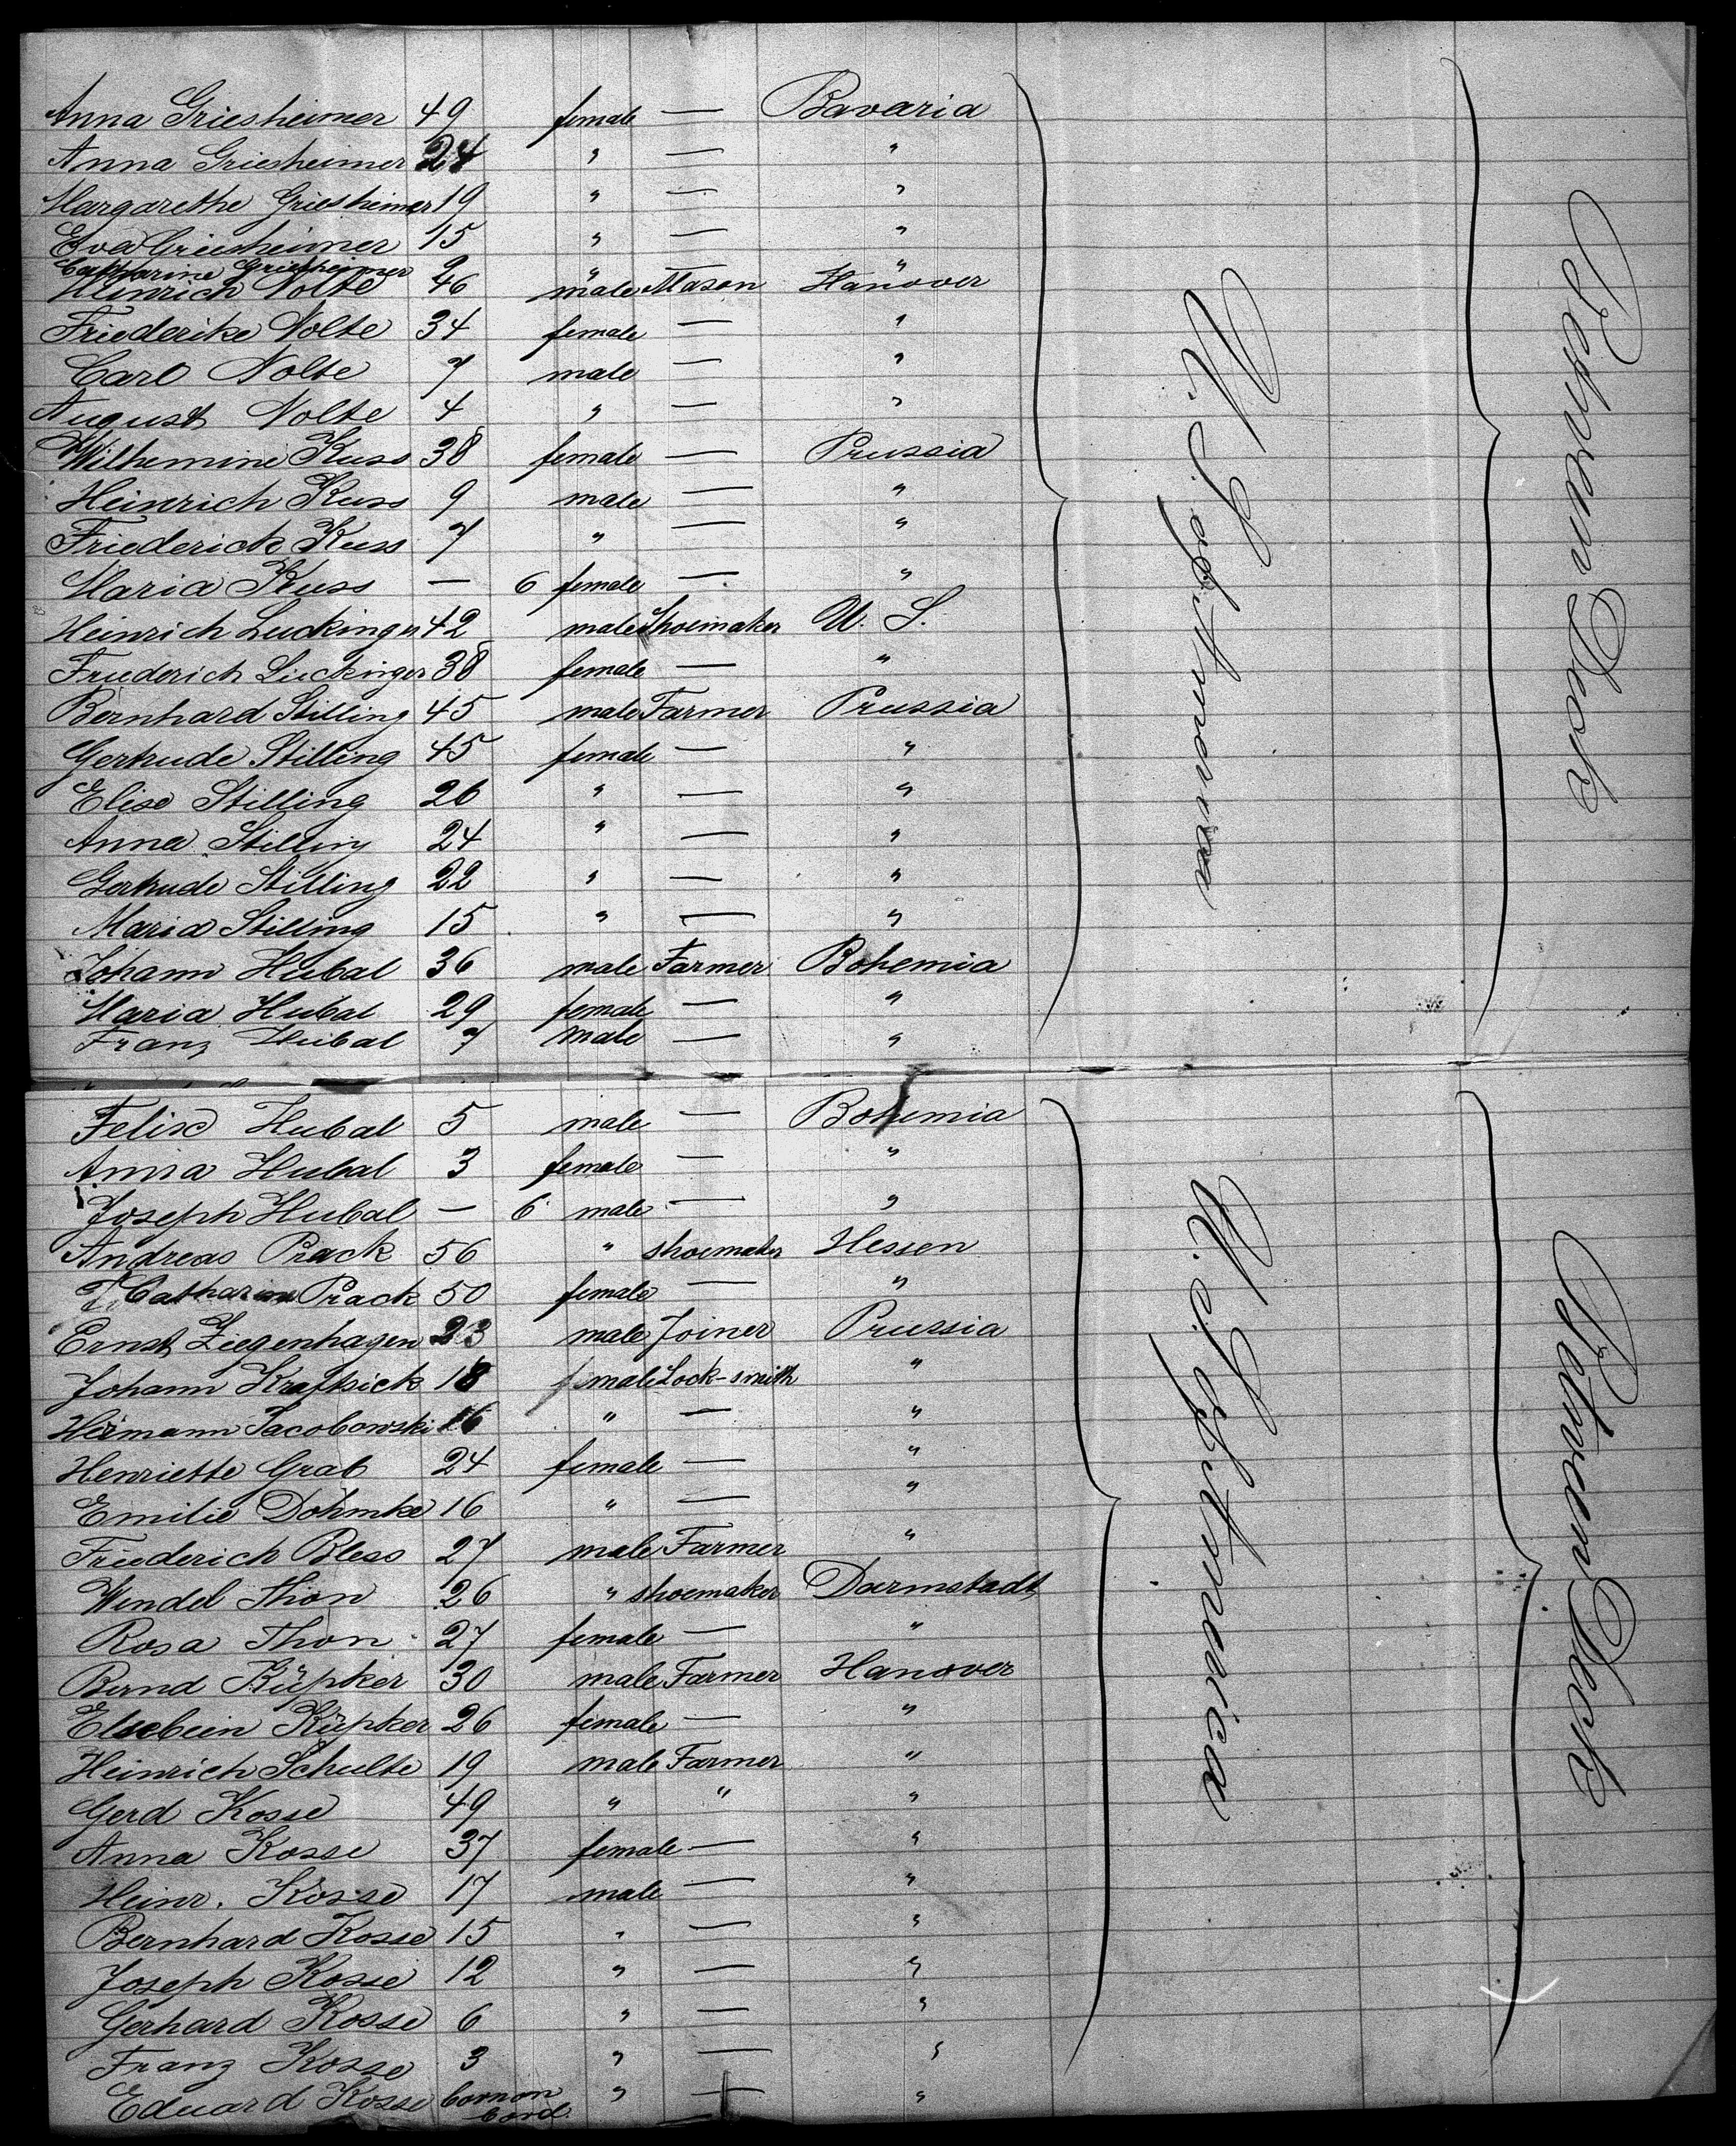 Anna Griesheimer 49 female — Bavaria
Anna Griesheimer 24 " — "
Margarethe Griesheimer 19 " — "
Eva Griesheimer 15 " — "
Catharine Griesheimer 9 " — "
Heinrich Nolte 46 male Mason Hanover
Friederike Nolte 34 female — "
Carl Nolte 7 male — "
August Nolte 4 " — "
Wilhemine Kuss 38 female — Prussia
Heinrich Kuss 9 male — "
Friederick Kuss 7 " — "
Maria Kuss — 6 female — "
Heinrich Luckinger 42 male Shoemaker U. S.
Friederich Luckinger 38 female — "
Bernhard Stilling 45 male Farmer Prussia
Gertrude Stilling 45 female — "
Elise Stilling 26 " — "
Anna Stilling 24 " — "
Gertrude Stilling 22 " — "
Maria Stilling 15 " — "
Johann Hubal 36 male Farmer Bohemia
Maria Hubal 29 female — "
Franz Hubal 7 male — "
U. S. of America
Between Deck
Felix Hubal 5 male — Bohemia
Anna Hubal 3 female — "
Joseph Hubal — 6 male — "
Andreas Prack 56 " shoemaker Hessen
Catharine Prack 50 female — "
Ernst Ziegenhagen 23 male Joiner Prussia
Johann Kraftsick 18 male Lock-smith "
Hermann Jacobowski 16 " — "
Henriette Grab 24 female — "
Emilie Dohmke 16 " — "
Friederich Bless 27 male Farmer "
Wendel Thon 26 " shoemaker Darmstadt
Rosa Thon 27 female — "
Bernd Küpker 30 male Farmer Hanover
Elsebein Küpker 26 female — "
Heinrich Schulte 19 male Farmer "
Gerd Kosse 49 " " "
Anna Kosse 37 female — "
Heinr. Kosse 17 male — "
Bernhard Kosse 15 " — "
Joseph Kosse 12 " — "
Gerhard Kosse 6 " — "
Franz Kosse 3 " — "
Eduard Kosse born on bord " — "
U. S. of America
Between Deck